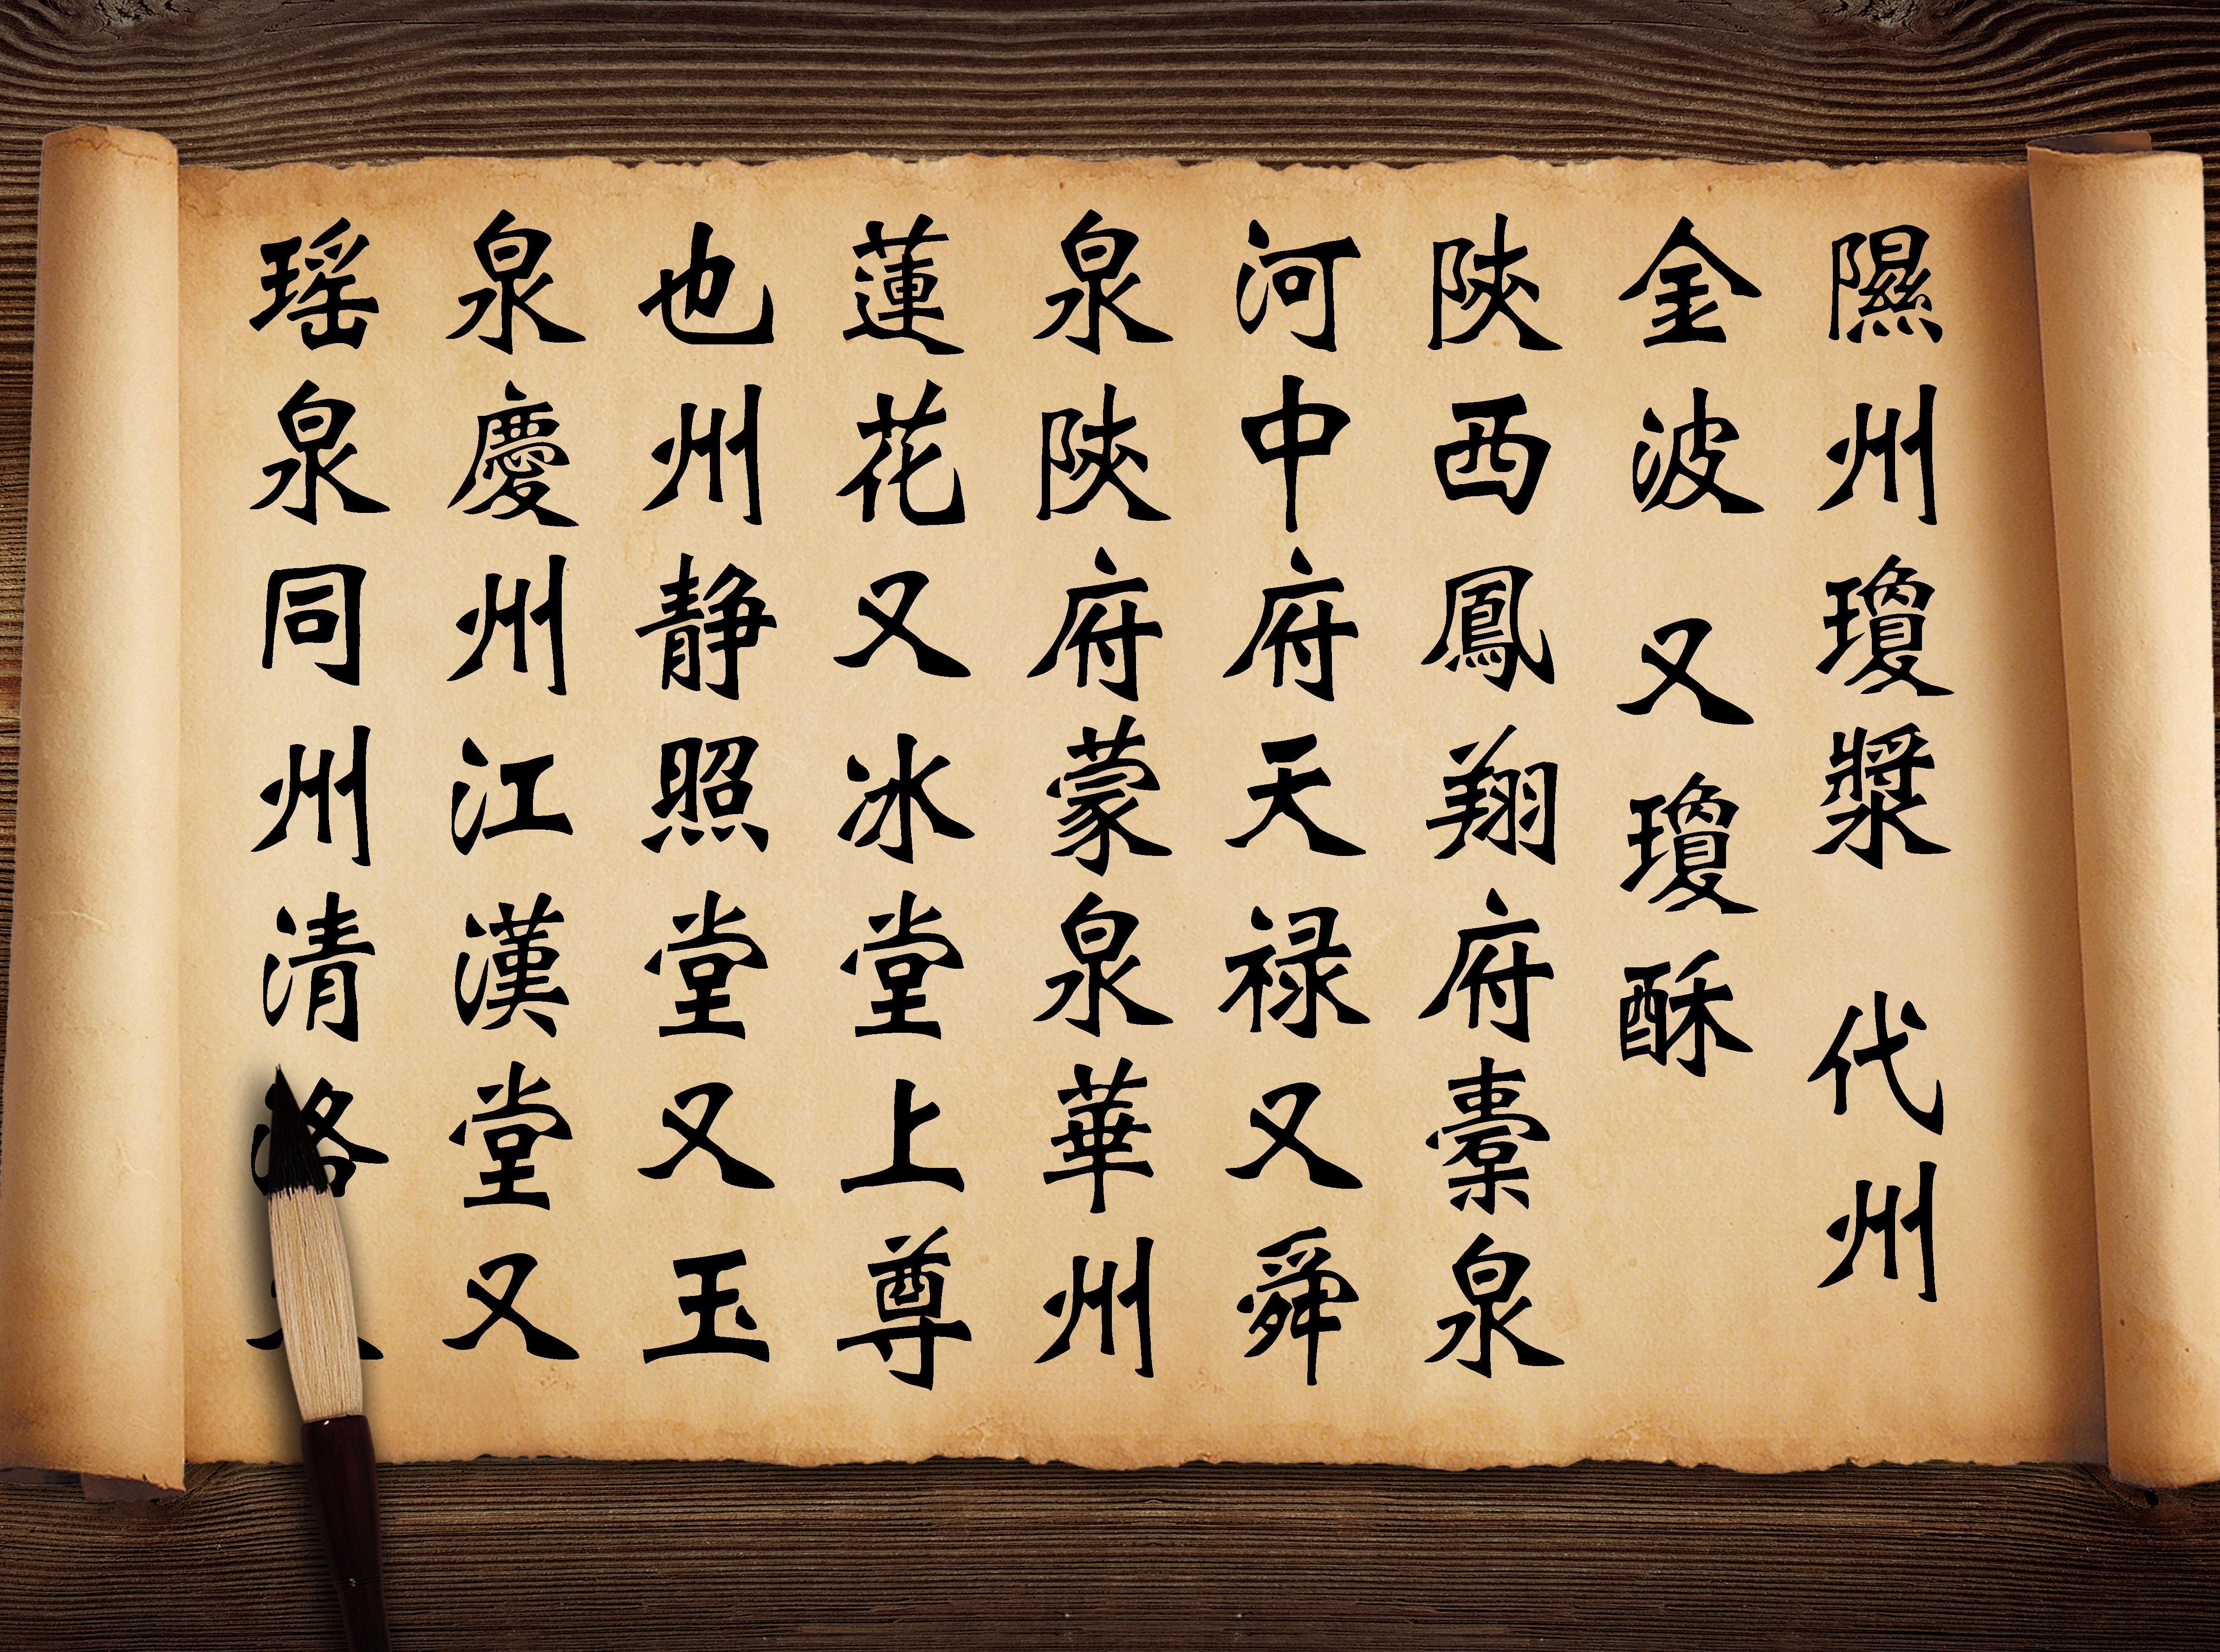 隰州瓊漿 代州
金波 又瓊酥
陝西鳳翔府橐泉
河中府天禄又舜
泉陝府蒙泉華州
蓮花又冰堂上尊
也州静照堂又玉
泉慶州江漢堂又
瑶泉同州清洛又